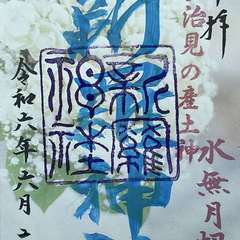 水無月
治見の産土神
拝
新羅神
新羅
神社
令和六年六月